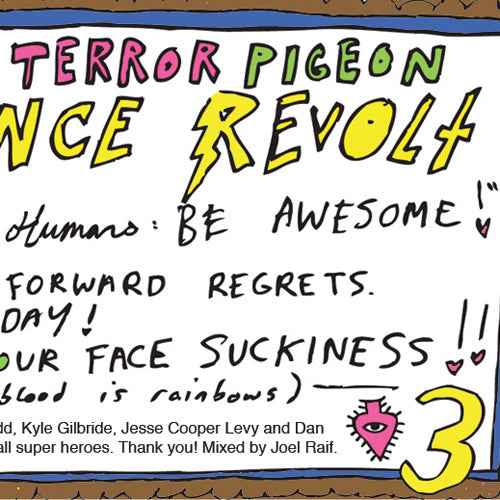 TERROR PIGEON
NCE REVOLT
Humans: BE AWESOME!"
FORWARD REGRETS.
DAY!
OUR FACE SUCKINESS!!
blood is rainbows)
dd, Kyle Gilbride, Jesse Cooper Levy and Dan
all super heroes. Thank you! Mixed by Joel Raif.
3